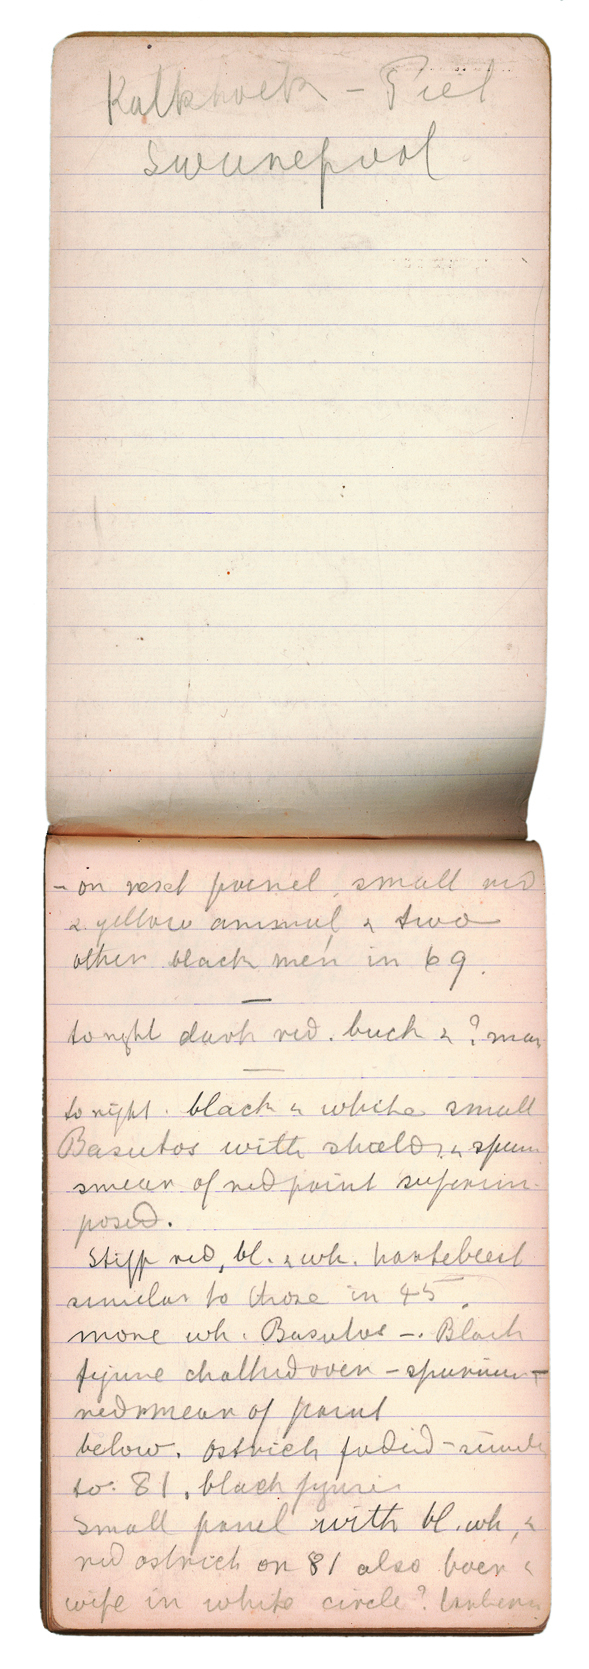 Kalkhoek - Piet
Swanepoel
- on next panel, small red
& yellow animal & two
other black men in 69.
to right dark red. buck & ? man
to right. black & white small
Basutos with shield, &
smear of red paint superim-
posed.
Stiff red, bl. & wh. hartebeest
similar to those in 45.
more wh. Basutos -. Black
figure chalked over -
red smear of paint
below. Ostrich faded -
to 81, black figure
Small panel with bl. wh, &
red ostrich on 81 also boer &
wife in white circle?